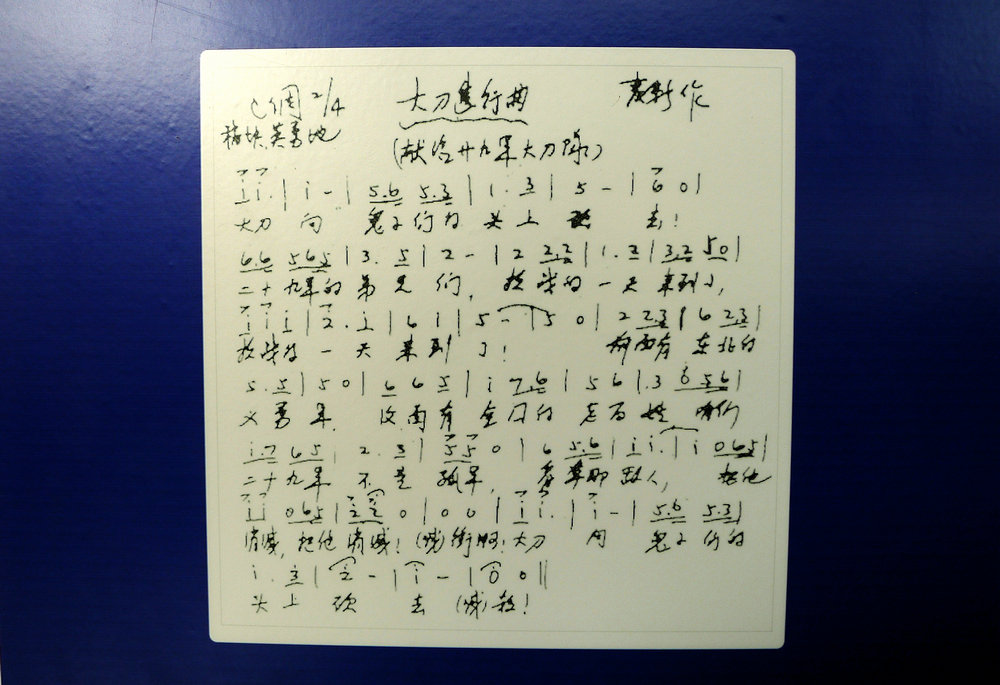 C调 2/4 大刀进行曲 麦新作
稍快 英勇地
(献给廿九军大刀队)
i i. | i - | 5.6 5.3 | 1. 3 | 5 - | 6 0 |
大刀 向 鬼子们的 头上 砍 去!
6.6 565 | 3. 5 | 2 - | 2 2.2 | 1. 2 | 3.2 50 |
二十九军的弟兄们, 抗战的一天来到了,
i i i | 2. i | 6 i | 5 - | 5 0 | 2 2 3 | 6 2.3 |
抗战的一天来到了! 前面有东北的
5. 5 | 5 0 | 6 6 5 | i 7.6 | 5 6 | .3 6 5 6 |
义勇军, 后面有全国的老百姓 咱们
i.7 65 | 2. 3 | 5 5 0 | 6 5.6 | i i. | i 065 |
二十九军不是孤军, 看准那敌人, 把他
i i 065 | 2 2 0 | 0 0 | i i. | i - | 5.6 5.3 |
消灭, 把他消灭! (喊)冲啊! 大刀 向 鬼子们的
i. 3 | 2 - | i - | 0 0 ||
头上 砍 去 (喊)杀!